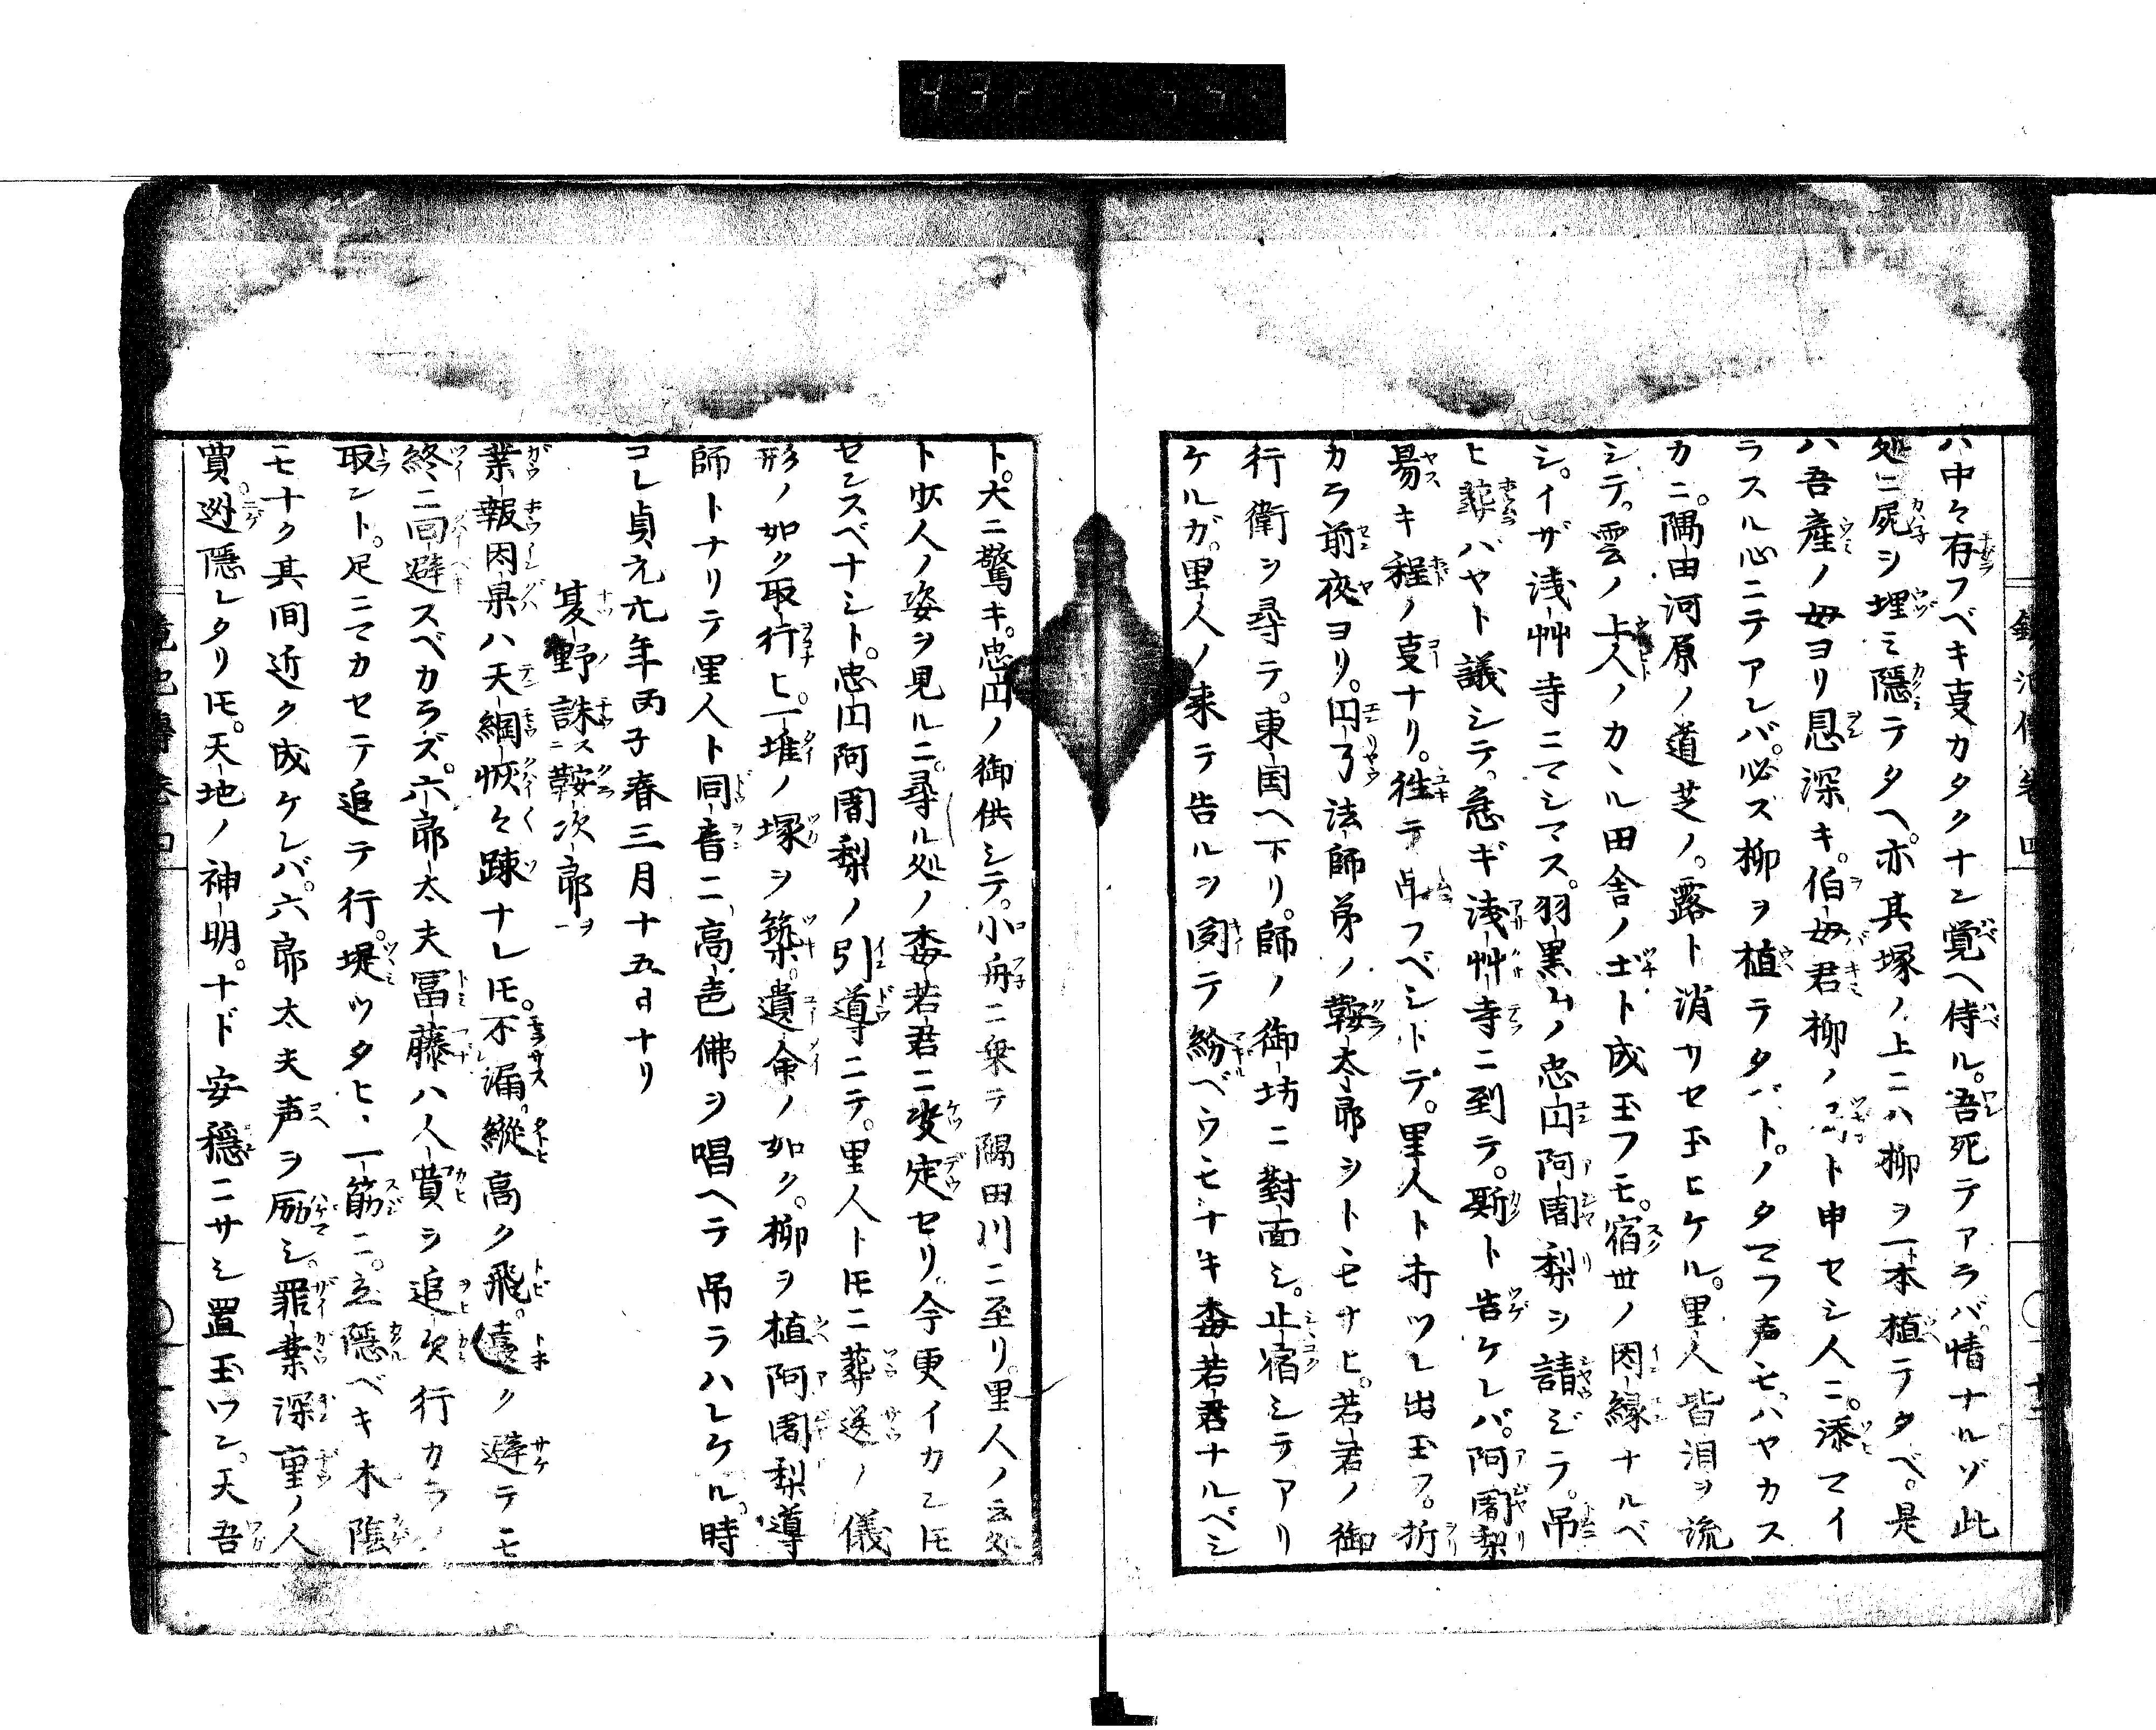 ハ中々存フベキ叓カタクナン覚ヘ侍ル。吾死テアラバ。情ナルゾ此
処ニ屍ヲ埋ミ隠テタヘ。亦其塚ノ上ニハ柳ヲ一本植テタベ。是
ハ吾産ノ母ヨリ恩深キ。伯母君柳ノコト申セシ人ニ。添マイ
ラスル心ニテアレバ。必ズ柳ヲ植テタバト。ノタマフ声モ。ハヤカス
カニ。隅田河原ノ道芝ノ。露ト消サセ玉ヒケル。里人皆泪ヲ流
シテ。雲ノ上人ノカヽル田舎ノ土ト成玉フモ。宿世ノ因縁ナルベ
シ。イザ浅艸寺ニマシマス。羽黒山ノ忠円阿闍梨ヲ請ジテ。吊
ヒ葬バヤト議シテ。急ギ浅艸寺ニ到テ。斯ト告ケレバ。阿闍梨
易キ程ノ叓ナリ。往テ吊フベシトテ。里人ト打ツレ出玉フ。折
カラ前夜ヨリ。円了法師弟ノ鞍太郎ヲトモナヒ。若君ノ御
行衛ヲ尋テ。東国ヘ下リ。師ノ御坊ニ對面シ。止宿シテアリ
ケルガ。里人ノ来テ告ルヲ聞テ紛ベウモナキ梅若君ナルベシ
ト。大ニ驚キ。忠円ノ御供シテ。小舟ニ乗テ隅田川ニ至リ。里人ノ云処
ト少人ノ姿ヲ見ルニ。尋ル処ノ梅若君ニ決定セリ。今更イカントモ
センスベナシト。忠円阿闍梨ノ引導ニテ。里人トモニ葬送ノ儀
形ノ如ク取行ヒ。一堆ノ塚ヲ築。遺命ノ如ク。柳ヲ植阿闍梨導
師トナリテ里人ト同音ニ高声佛ヲ唱ヘテ吊ラハレケル。時
コレ貞元元年丙子春三月十五日ナリ
夏野誅ス鞍次郎ヲ
業報因果ハ天網恢々踈ナレ𪜈。不漏。縦高ク飛。遠ク避テモ
終ニ回避スベカラズ。六郎太夫冨藤ハ人買ヲ追欠行カラメ
取ント。足ニマカセテ追テ行。堤ツタヒ、一筋ニ。立隠ベキ木陰
モナク其間近ク成ケレバ。六郎太夫声ヲ励シ。罪業深重ノ人
買。逃隠レタリ𪜈。天地ノ神明。ナド安穏ニサシ置玉ワン。天吾